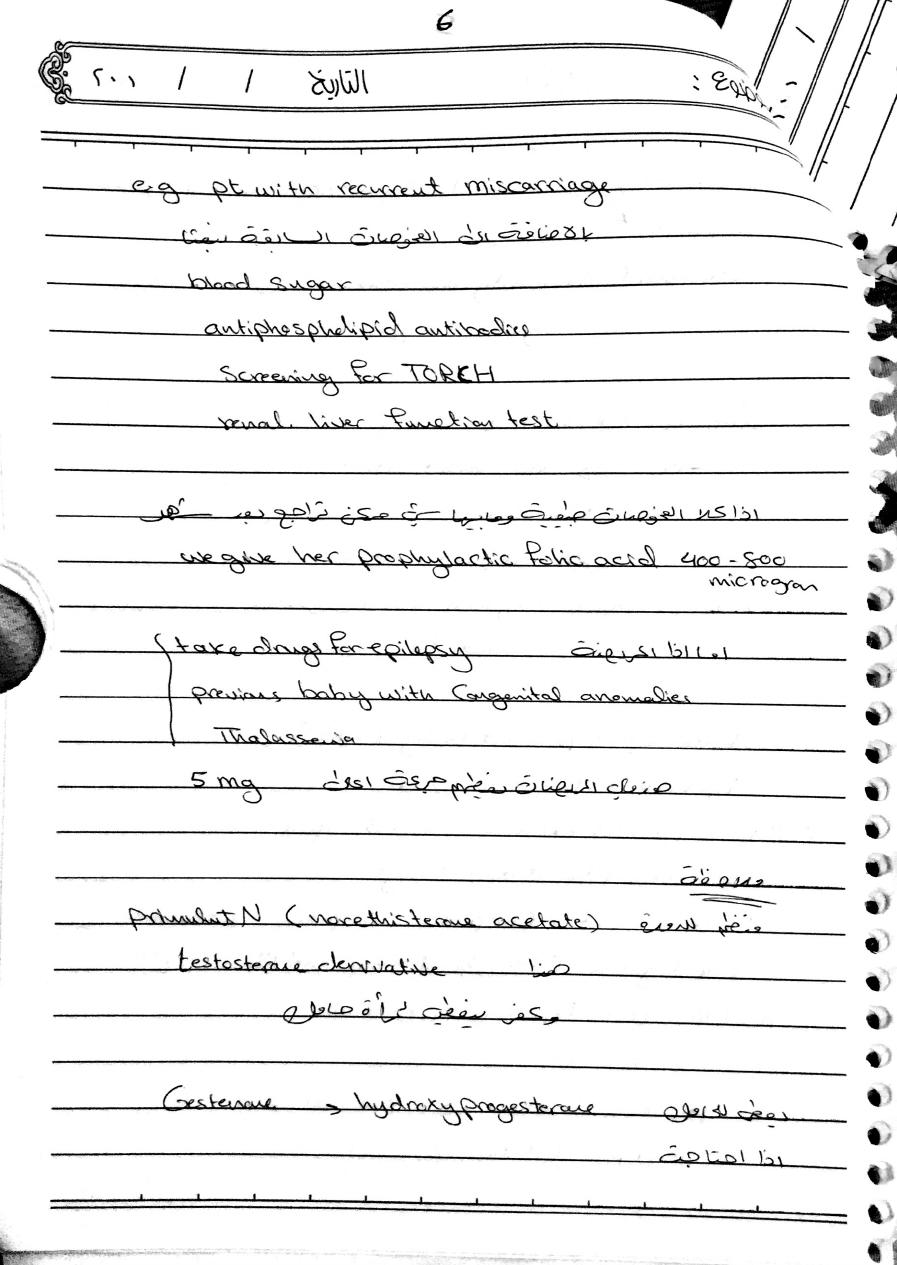 6
الموضوع : التاريخ / / ٢٠٠١
e.g pt with recurrent miscarriage
بالاضافة الى الفحوصات السابقة
blood sugar
antiphospholipid antibodies
Screening for TORCH
renal. liver function test
اذا كلا الفحوصات طبيعية ومابيها شي ممكن تراجع بعد شهر
we give her prophylactic folic acid 400 - 800
microgram
take drugs for epilepsy اما اذا المريضة
previous baby with Congenital anomalies
Thalassemia
هنا المريضات نعطيهم جرعة اعلى 5 mg
ملاحظة
primulut N (norethisterone acetate) منظم للدورة
testosterone derivative هذا
ممكن نعطيه لمرأة حامل
Gestenone → hydroxyprogesterone يعطى للحامل
اذا احتاجت